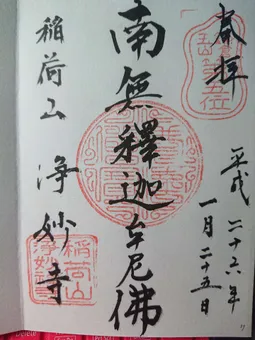 奉拝
平成二十六年
一月二十五日
南無釋迦牟尼佛
稻荷山 淨妙寺
稻荷山
淨妙寺